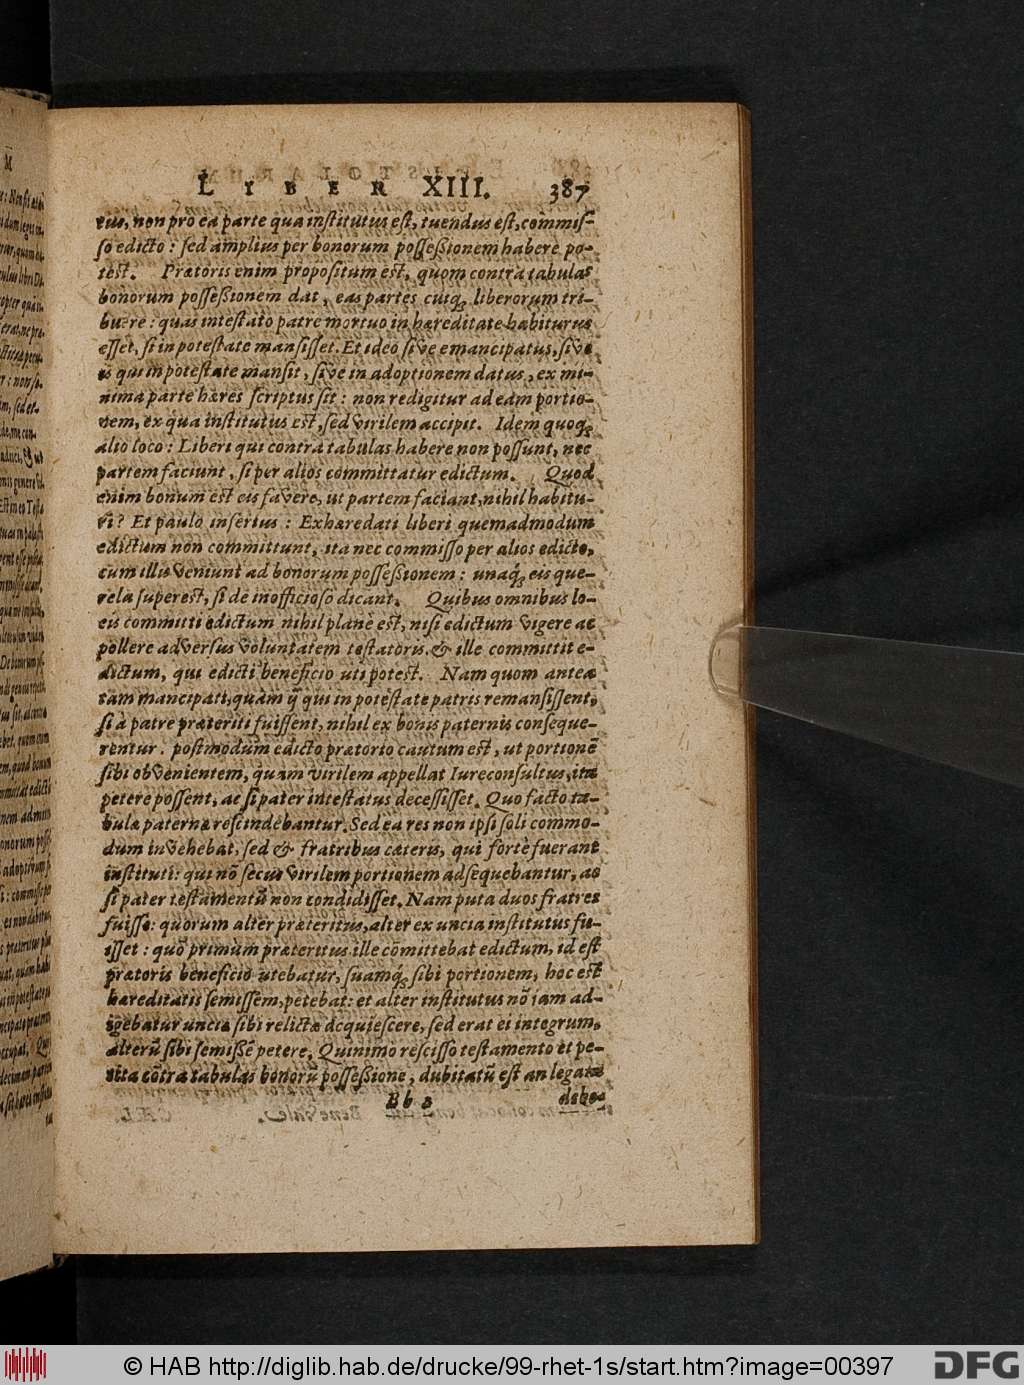 LIBER XIII. 387
tus, non pro ea parte qua institutus est, tuendus est, commis-
so edicto: sed amplius per bonorum possessionem habere po-
test. Prætoris enim propositum est, quom contra tabulas
bonorum possessionem dat, eas partes cuiq; liberorum tri-
buere: quas intestato patre mortuo in hæreditate habiturus
esset, si in potestate mansisset. Et ideo sive emancipatus, sive
is qui in potestate mansit, sive in adoptionem datus, ex mi-
nima parte hæres scriptus sit: non redigitur ad eam portio-
nem, ex qua institutus est, sed virilem accipit. Idem quoq;
alio loco: Liberi qui contra tabulas habere non possunt, nec
partem faciunt, si per alios committatur edictum. Quod
enim bonum est eis favere, ut partem faciant, nihil habitu-
ri? Et paulò inferius: Exhæredati liberi quemadmodum
edictum non committunt, ita nec commisso per alios edicto,
cum illis veniunt ad bonorum possessionem: unaq; eis que-
rela superest, si de inofficioso dicant. Quibus omnibus lo-
cis committi edictum nihil planè est, nisi edictum vigere ac
pollere adversus voluntatem testatoris. & ille committit e-
dictum, qui edicti beneficio uti potest. Nam quom antea
tam mancipati, quàm ij qui in potestate patris remansissent,
si à patre præteriti fuissent, nihil ex bonis paternis conseque-
rentur. postmodum edicto prætorio cautum est, ut portionē
sibi obvenientem, quam virilem appellat Iureconsultus, ita
petere possent, ac si pater intestatus decessisset. Quo facto ta-
bulæ paternæ rescindebantur. Sed ea res non ipsi soli commo-
dum invehebat, sed & fratribus cæteris, qui fortè fuerant
instituti: qui nō secus virilem portionem adsequebantur, ac
si pater testamentū non condidisset. Nam puta duos fratres
fuisse: quorum alter præteritus, alter ex uncia institutus fu-
isset: quō primùm præteritus ille cōmittebat edictum, id est
prætoris beneficio utebatur, suamq; sibi portionem, hoc est
hæreditatis semissem, petebat: et alter institutus nō iam ad-
igebatur uncia sibi relicta acquiescere, sed erat ei integrum,
alterū sibi semissē petere. Quinimo rescisso testamento et pe-
tita cōtra tabulas bonorū possessione, dubitatū est an legata
Bb 2 debe-
© HAB http://diglib.hab.de/drucke/99-rhet-1s/start.htm?image=00397
DFG